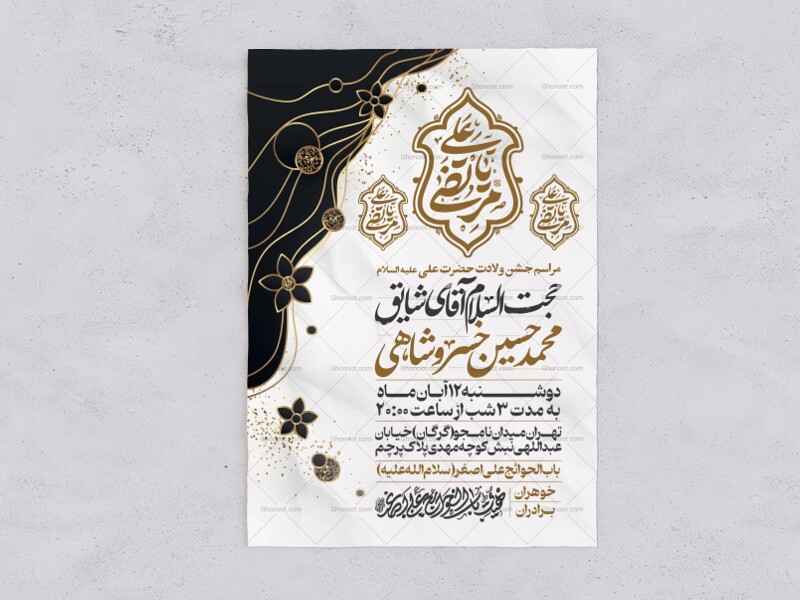 یا علی مرتضی
یا علی مرتضی
یا علی مرتضی
مراسم جشن ولادت حضرت علی علیه السلام
حجت السلام آقای شایق
محمدحسین خسروشاهی
دوشنبه ۱۲ آبان ماه
به مدت ۳ شب از ساعت ۲۰:۰۰
تهران میدان نامجو(گرگان)خیابان
عبداللهی نبش کوچه مهدی پلاک پرچم
باب الحوائج علی اصغر(سلام الله علیه)
خواهران
برادران
Ghonoot.com